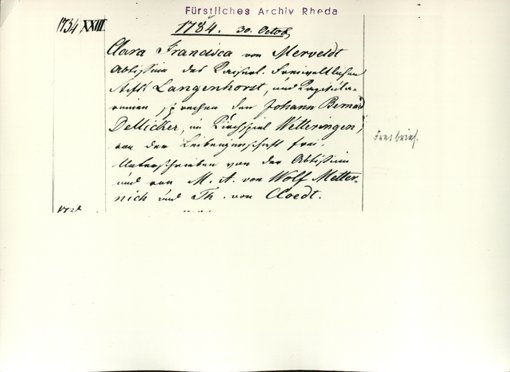 Fürstliches Archiv Rheda
1734 XXIII. 1784. 30. Octob.
Clara Francisca von Merveldt
Abtissin des Kaiserl. freiweltlichen
Stifts Langenhorst, und Kapitula-
rinnen, sprechen den Johann Bernard
Dellicker, im Kirchspiel Wetteringen,
von der Leibeigenschaft frei.
Unterschrieben von der Abtissin
und von M. A. von Wolf Metter-
nich und Th. von Cloedt.
Freibrief.